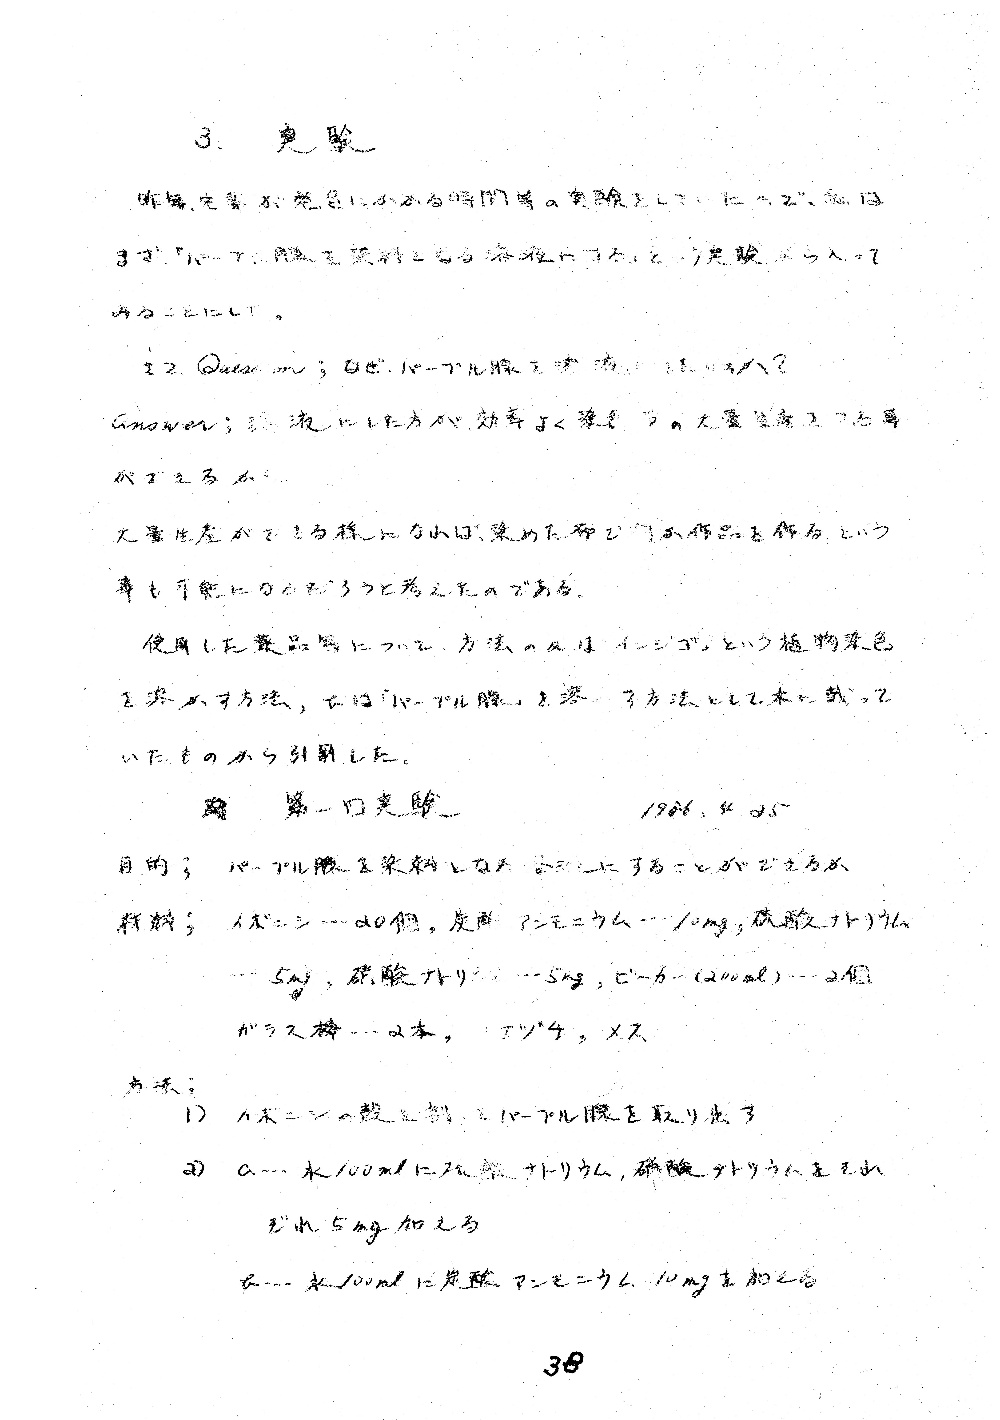 3. 実験
昨年、先輩が発色にかかる時間等の実験をしていたので、私は
まず「パープル腺を染料となる溶液にする」という実験から入って
みることにした。
Question ; なぜ、パープル腺を溶液に
answer ; 溶液にした方が効率よく染色 の大量生産 事
ができるから
大量生産ができる様になれば、染めた布で 作品を作るという
事も可能になるだろうと考えたのである。
使用した薬品等について、方法のaはインジゴという植物染色
を溶かす方法, bは「パープル腺」を溶かす方法として本に載って
いたものから引用した。
第一回実験 1986. 4 25
目的 ; パープル腺を染料となる にすることができるか
材料 ; イボニシ…20個, 炭酸アンモニウム…10mg, 硫酸ナトリウム
…5mg, 硫酸ナトリウム…5mg, ビーカー(200ml)…2個
ガラス棒…2本, カナヅチ, メス
方法 ;
1) イボニシの殻を割ってパープル腺を取り出す
2) a… 水100mlに ナトリウム, 硫酸ナトリウムをそれ
ぞれ5mg加える
b… 水100mlに炭酸アンモニウム10mgを加える
38